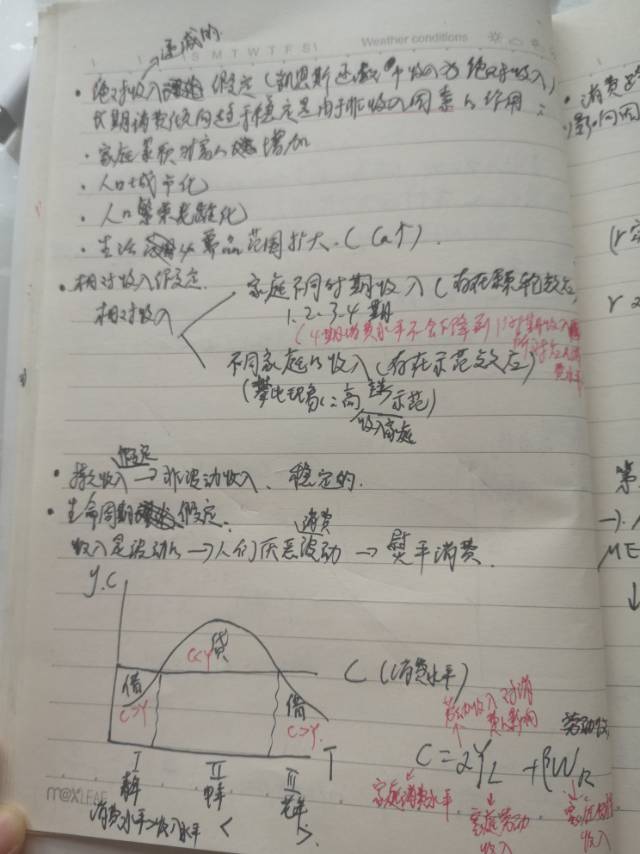 递减的
S M T W T F S
Weather conditions
·绝对收入假定(凯恩斯 中收入为绝对收入)
长期消费倾向趋于稳定是由于非收入因素的作用:
·家庭累积财富增加
·人口城市化
·人口老龄化
·生活必需品范围扩大.(Ca↑).
·相对收入假定.
相对收入
家庭不同时期收入(存在棘轮效应)
1.2.3.4期
(4期消费水平不会下降到1时期收入所对应的消费水平
不同家庭的收入(存在示范效应)
(攀比现象:高 示范)
收入家庭
假定
·持久收入→非波动收入、稳定的.
·生命周期假定.
消费
收入是波动的→人们厌恶波动→熨平消费.
Y.C
贷
C<Y
借
C>Y
借
C>Y.
C(消费水平)
T
I
II
III
青年
中年
老年
消费水平>收入水平
<
>.
劳动收入对消费的影响
C=αYL+βWR
家庭消费水平
家庭劳动收入
收入
m@XLEAF
消费
影响因
(r
r
第
ME
↓